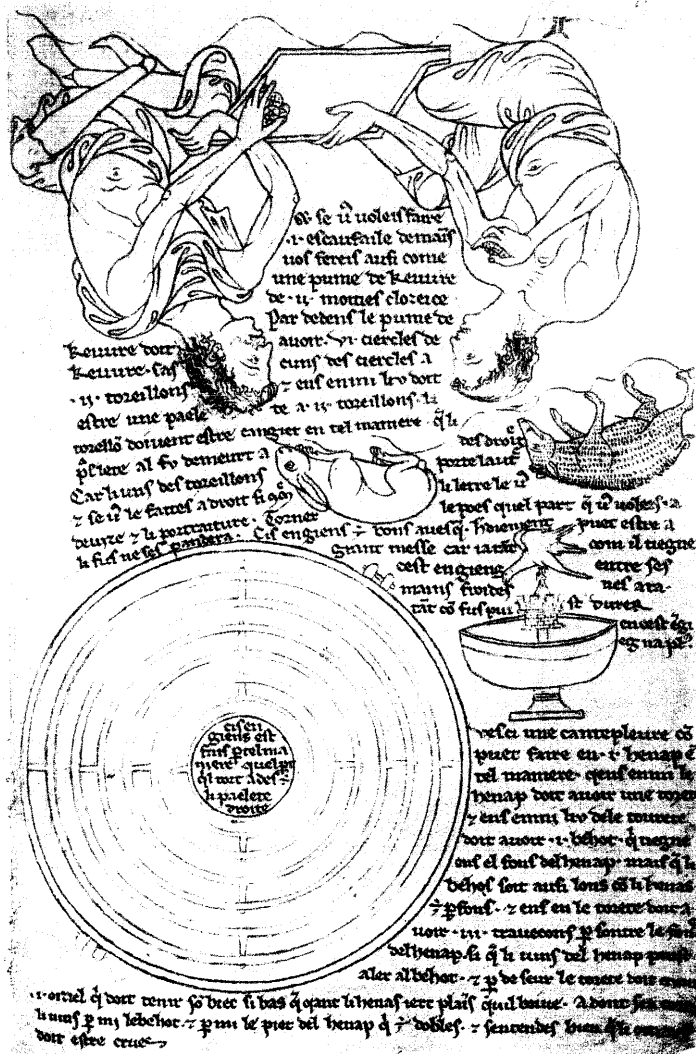 se u̾ voleis faire
·i· escaufaile de mais
vos fereis ausi come
une pume de keuvre
de ·ii· moities clozeice
Par dedens le pume de
keuvre doit avoir ·vi· ciercles de
keuvre· cas cuns des ciercles a
·ii· toreillons ⁊ ens enmi liu doit
estre une paele te a ·ii· toreillons· li
torellō doivent estre cangiet en tel maniere· q̄ li
p̄lete al fu demeurt a des droit
Car li uns des toreillons porte laut̾
⁊ se u̾ le faites a droit si com li letre le u̾
devize ⁊ li portraiture· Torner le poes quel part q̄ u̾ voleis· ja
li fus ne se spandera· Cis engiens ÷ bons a vesq̄· puet estre a
grant messe car ja tāt com il tiegne
cest engieng entre ses
mains froides nes ara·
tāt cō fus puist durer
en cest ēgi
eg na pl̾·
cis en
giens est
fais p̄ tel ma
niere quel p̄t
qil tort ades ÷
li paelete
droite
Vesci une cantepleure cō
puet faire en ·i· henap ē
tel maniere· qens enmi le
henap doit avoir une torete
⁊ ens enmi liu de le tourete
doit avoir ·i· behot· q̄ tiegne
ens el fons del henap· mais q̄ li
behos soit ausi lons cō li henas
÷ p̄fons· ⁊ ens en le torete doit a
voir ·iii· travecons p̄ sontre le fons
del henap· si q̄ li vins del henap puist
aler al behot· ⁊ p̄ de seur le torete doit avoir
·i· oiziel q̄ doit tenir sō biec si bas q̄ qant li henas iert plais quil boive· Adont sen
li vins p̄ mi le behot· ⁊ p̄ mi le piet del henap q̄ ÷ dobles· ⁊ sentendes bien q̄ li
doit estre crues